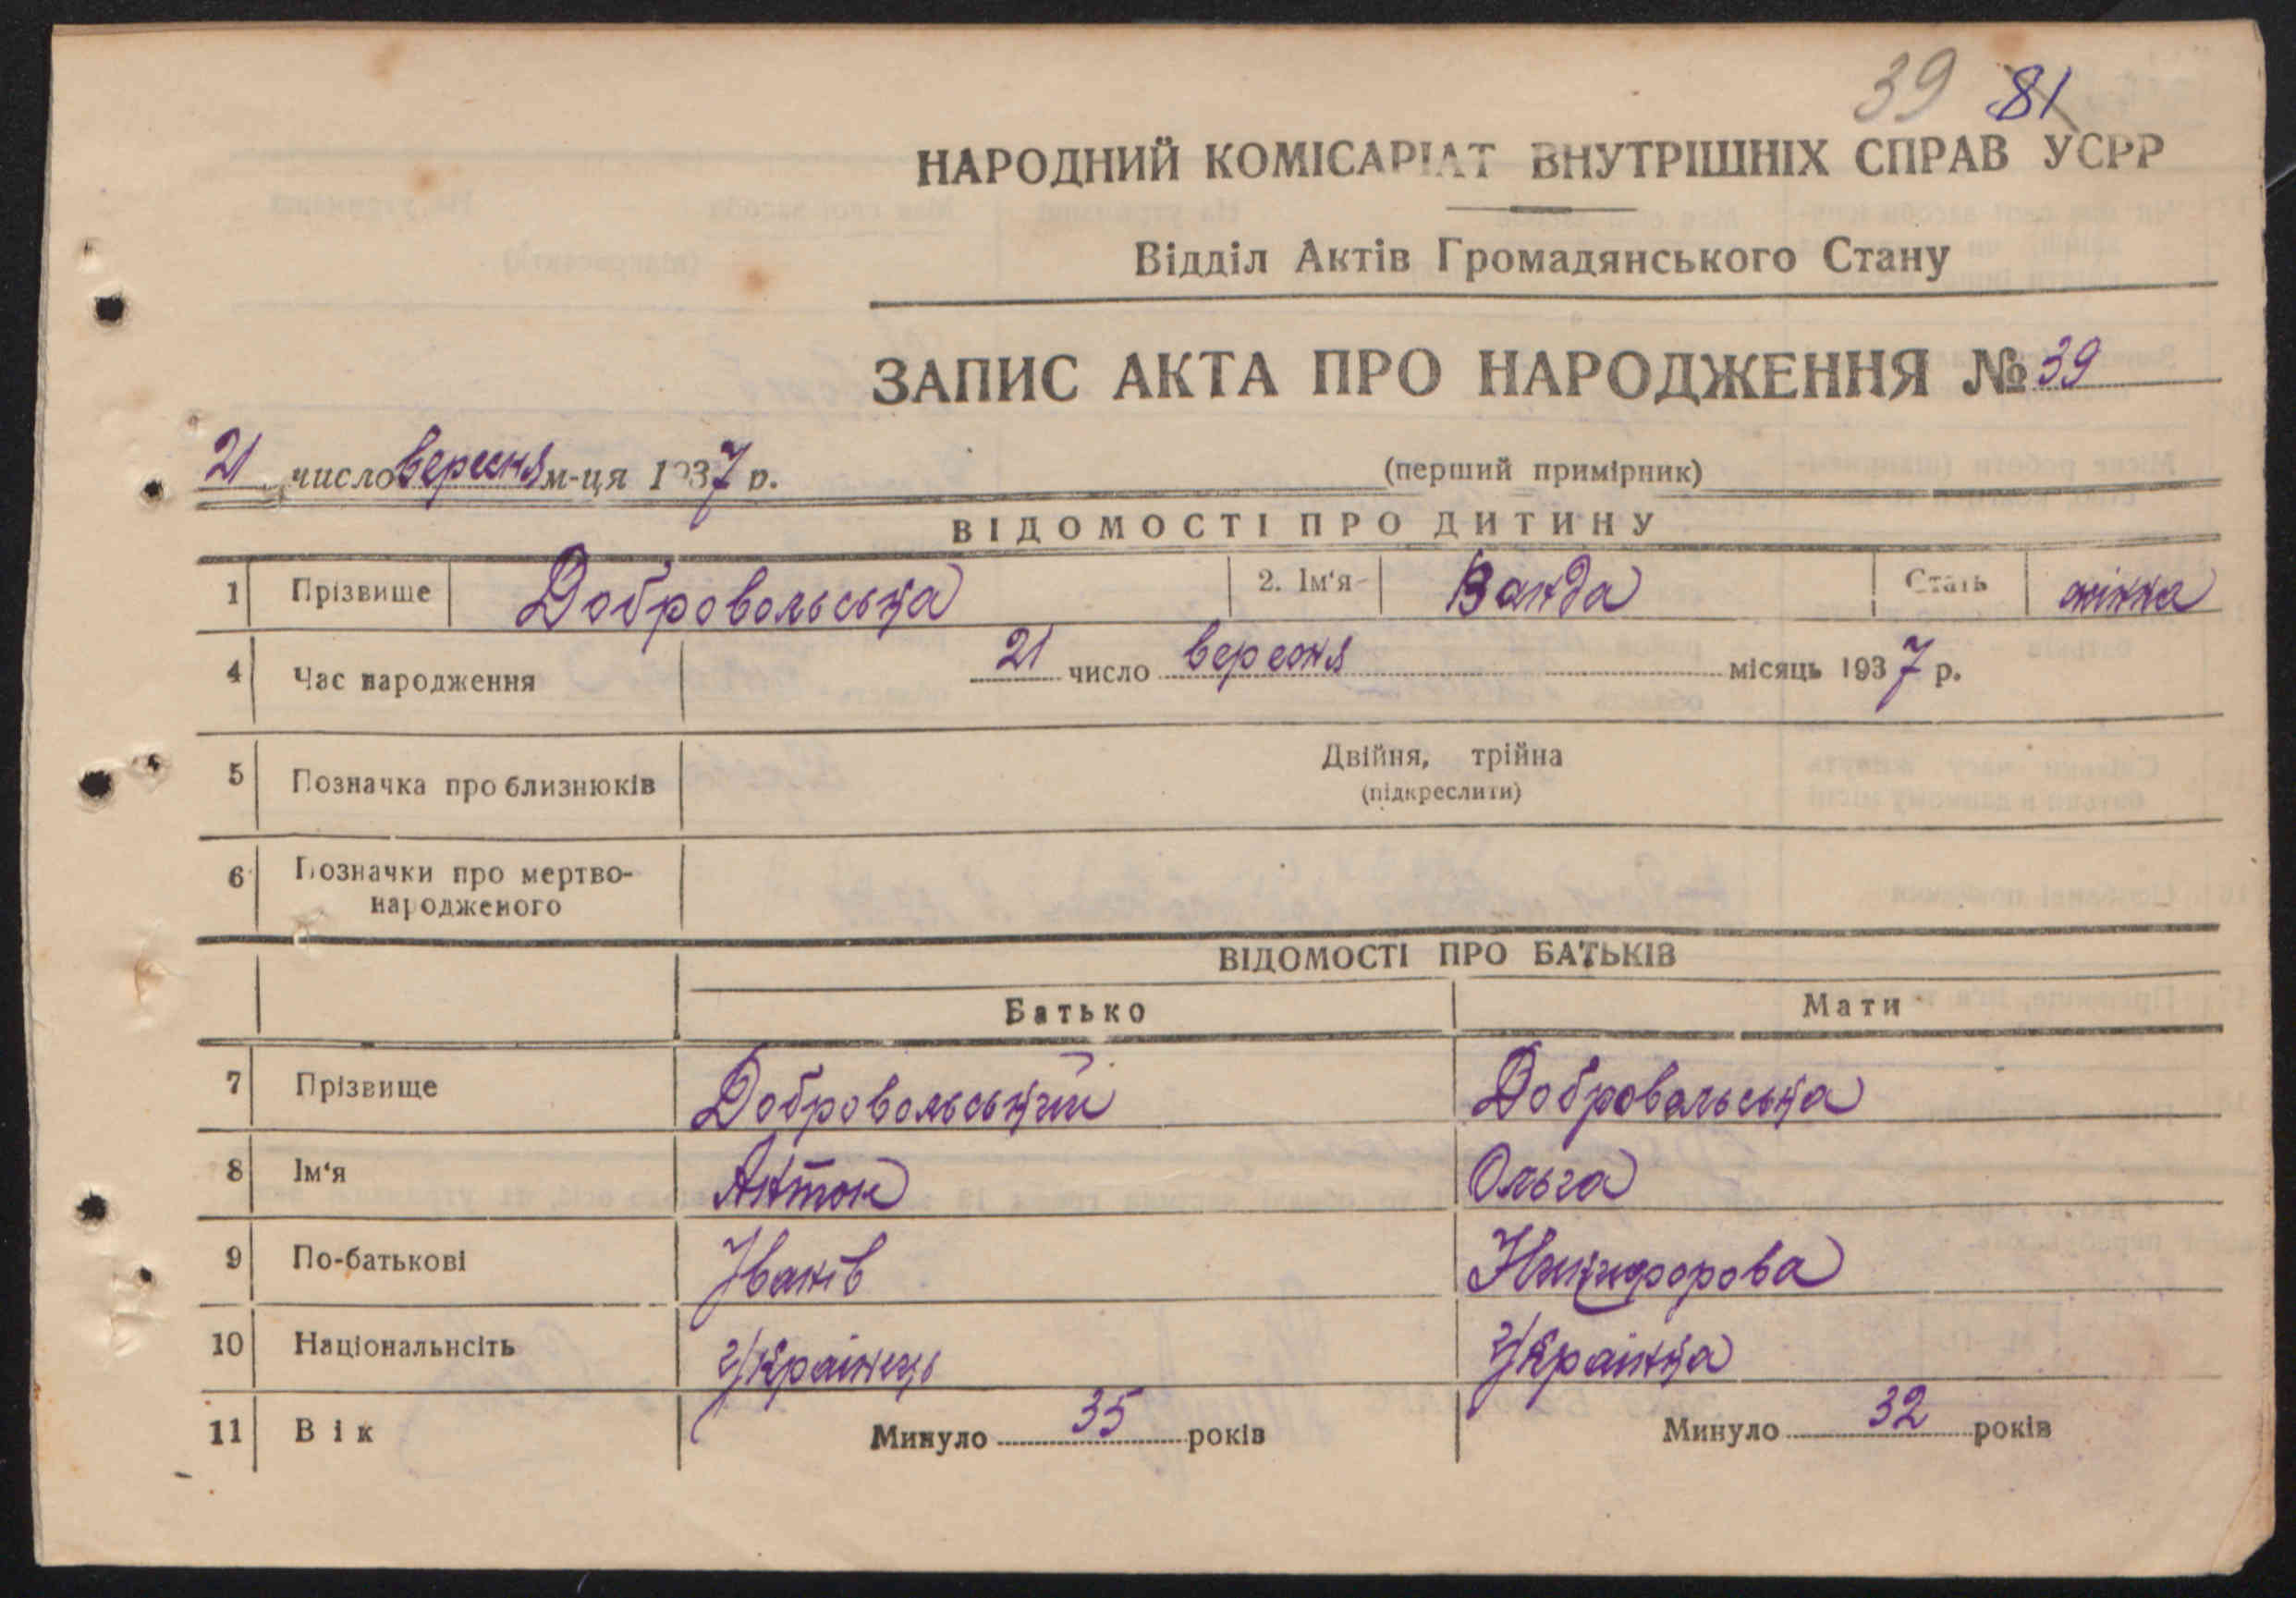 39 81
НАРОДНИЙ КОМІСАРІАТ ВНУТРІШНІХ СПРАВ УСРР
Відділ Актів Громадянського Стану
ЗАПИС АКТА ПРО НАРОДЖЕННЯ № 39
21 число вересня м-ця 1937 р. (перший примірник)
ВІДОМОСТІ ПРО ДИТИНУ
1 Прізвище Добровольська 2. Ім'я Ванда Стать жінка
4 Час народження 21 число вересня місяць 1937 р.
5 Позначка про близнюків Двійня, трійна
(підкреслити)
6 Позначки про мертво-
народженого
ВІДОМОСТІ ПРО БАТЬКІВ
Батько Мати
7 Прізвище Добровольський Добровольська
8 Ім'я Антон Ольга
9 По-батькові Іванів Никифорова
10 Національнсіть Українець Українка
11 Вік Минуло 35 років Минуло 32 років